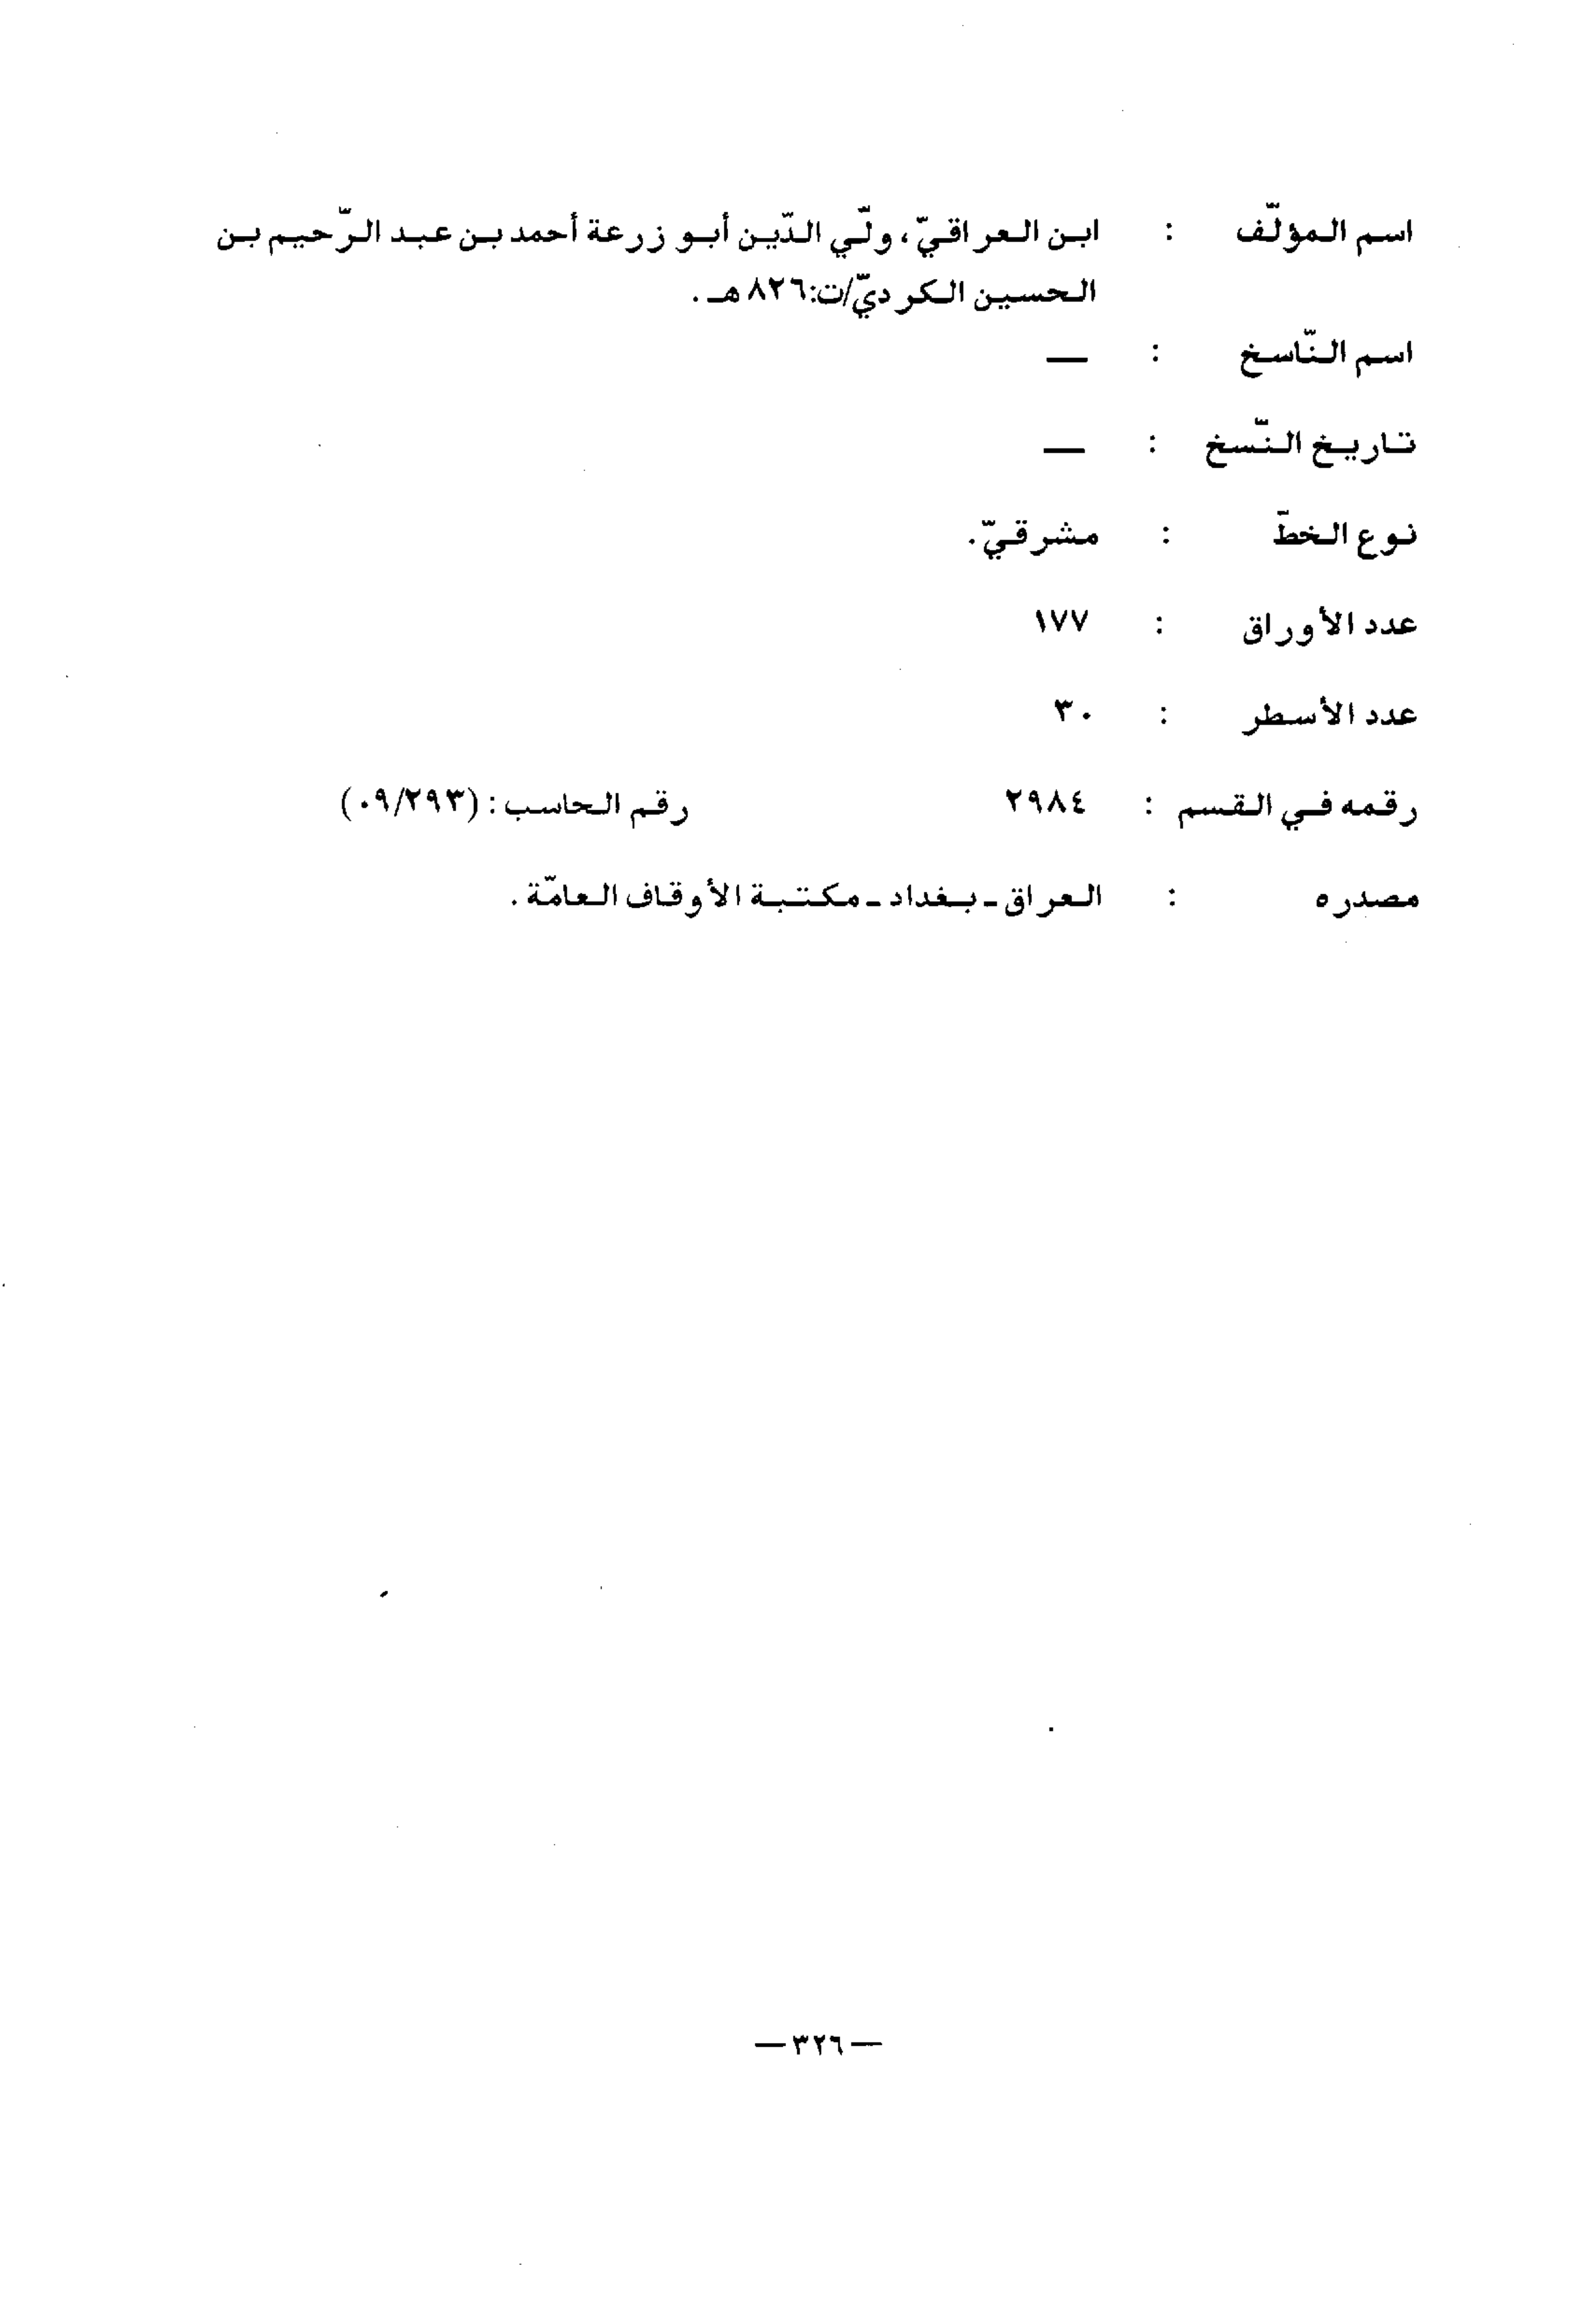 اسم المؤلّف : ابن العراقيّ، ولّي الدّين أبو زرعة أحمد بن عبد الرّحيم بن
الحسين الكرديّ/ت:٨٢٦هـ.
اسم النّاسخ : —
تاريخ النّسخ : —
نوع الخطّ : مشرقيّ.
عدد الأوراق : ١٧٧
عدد الأسطر : ٣٠
رقمه في القسم : ٢٩٨٤ رقم الحاسب: (٠٩/٢٩٣)
مصدره : العراق - بغداد - مكتبة الأوقاف العامّة.
—٣٢٦—